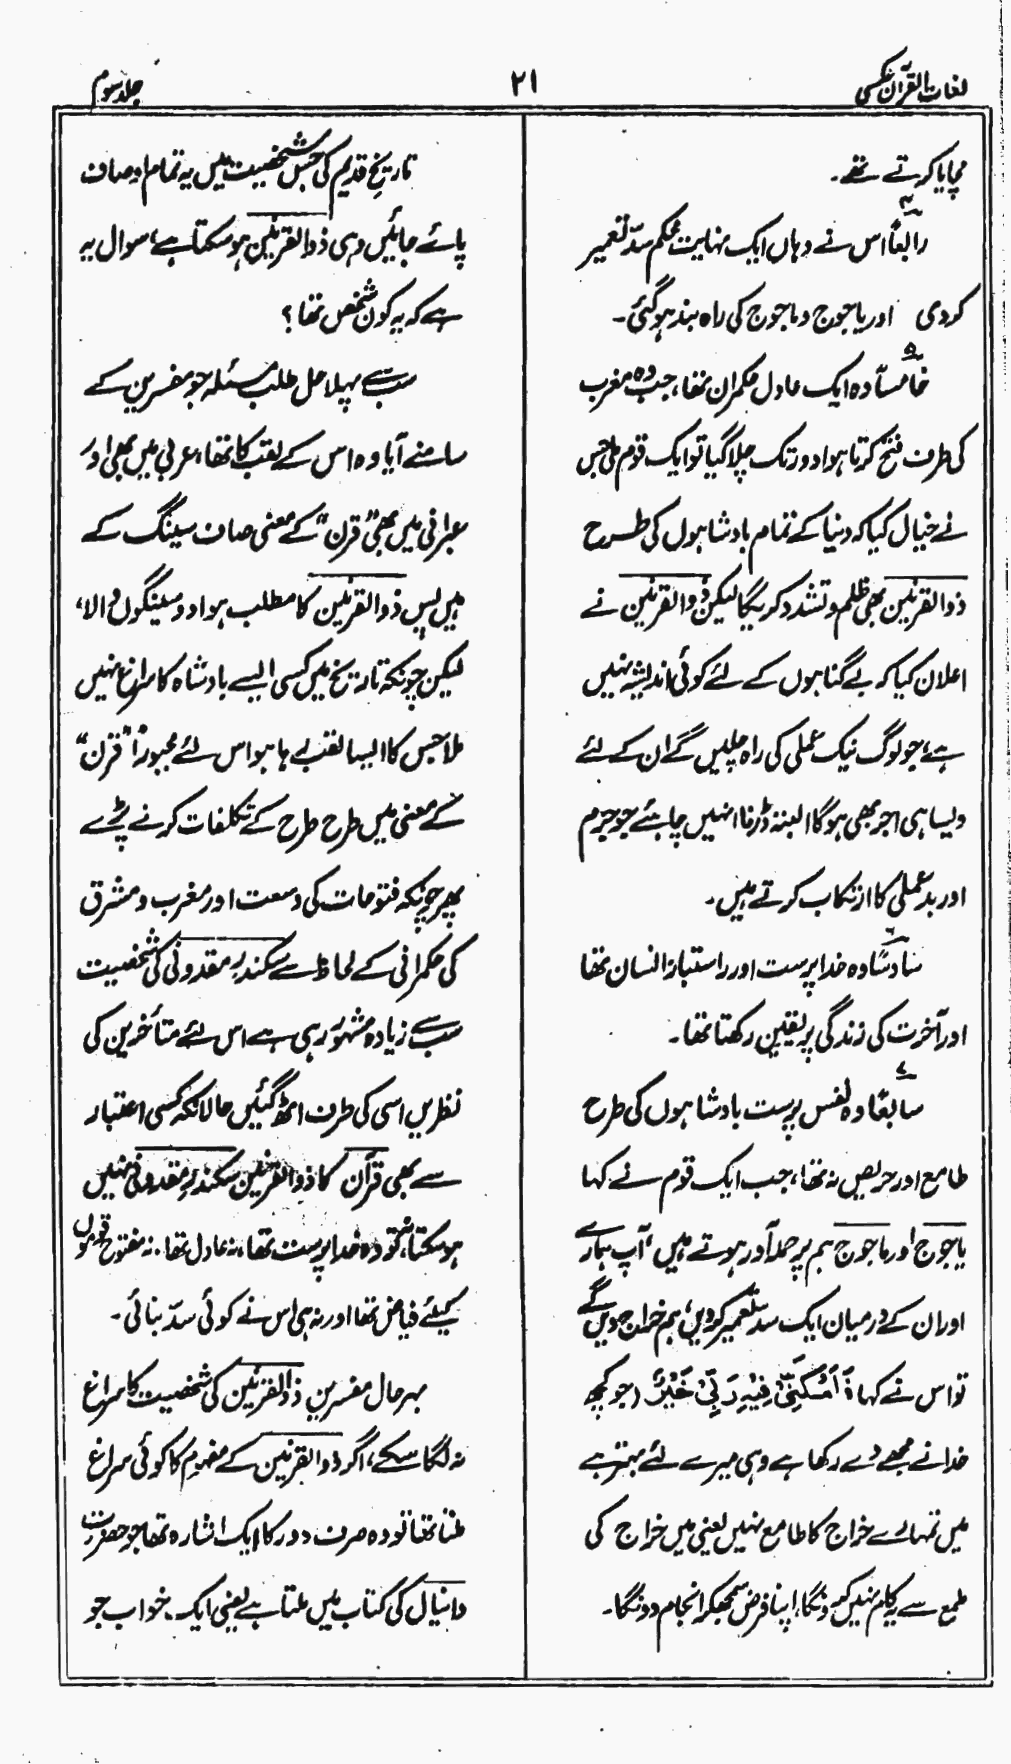 لغات القرآن عکسی
۲۱
جلد سوم
مچایا کرتے تھے۔
۴
رابعاً اس نے وہاں ایک نہایت محکم سدّ تعمیر
کردی اور یاجوج و ماجوج کی راہ بند ہوگئی۔
۵
خامساً وہ ایک عادل حکمران تھا، جب وہ مغرب
کی طرف فتح کرتا ہوا دور تک چلا گیا تو ایک قوم ملی جس
نے خیال کیا کہ دنیا کے تمام بادشاہوں کی طرح
ذوالقرنین بھی ظلم و تشدد کریگا لیکن ذوالقرنین نے
اعلان کیا کہ بے گناہوں کے لئے کوئی اندیشہ نہیں
ہے، جو لوگ نیک عملی کی راہ چلیں گے ان کے لئے
ویسا ہی اجر بھی ہوگا البتہ ڈرنا انہیں چاہئے جو جرم
اور بدعملی کا ارتکاب کرتے ہیں۔
۶
سادساً وہ خدا پرست اور راستباز انسان تھا
اور آخرت کی زندگی پر یقین رکھتا تھا۔
۷
سابعاً وہ نفس پرست بادشاہوں کی طرح
طامع اور حریص نہ تھا، جب ایک قوم نے کہا
یاجوج اور ماجوج ہم پر حملہ آور ہوتے ہیں، آپ ہمارے
اور ان کے درمیان ایک سدّ تعمیر کردیں، ہم خراج دیں گے
تو اس نے کہا مَا مَكَّنِّيْ فِيْهِ رَبِّيْ خَيْرٌ (جو کچھ
خدا نے مجھے دے رکھا ہے وہی میرے لئے بہتر ہے
میں تمہارے خراج کا طامع نہیں یعنی میں خراج کی
طمع سے یہ کام نہیں کروں گا، اپنا فرض سمجھ کر انجام دونگا۔
تاریخ قدیم کی جس شخصیت میں یہ تمام اوصاف
پائے جائیں وہی ذوالقرنین ہوسکتا ہے، سوال یہ
ہے کہ یہ کون شخص تھا؟
سب سے پہلا حل طلب مسئلہ جو مفسرین کے
سامنے آیا وہ اس کے لقب کا تھا، عربی میں بھی اور
عبرانی میں بھی "قرن" کے معنی صاف سینگ کے
ہیں پس ذوالقرنین کا مطلب ہوا دو سینگوں والا،
لیکن چونکہ تاریخ میں کسی ایسے بادشاہ کا سراغ نہیں
ملا جس کا ایسا لقب رہا ہو اس لئے مجبوراً "قرن"
کے معنی میں طرح طرح کے تکلفات کرنے پڑے
پھر چونکہ فتوحات کی وسعت اور مغرب و مشرق
کی حکمرانی کے لحاظ سے سکندر مقدونی کی شخصیت
سب سے زیادہ مشہور رہی ہے اس لئے متأخرین کی
نظریں اسی کی طرف اٹھ گئیں حالانکہ کسی اعتبار
سے بھی قرآن کا ذوالقرنین سکندر مقدونی نہیں
ہوسکتا، نہ تو وہ خدا پرست تھا، نہ عادل تھا، نہ مفتوح قوموں
کیلئے فیاض تھا اور نہ ہی اس نے کوئی سدّ بنائی۔
بہرحال مفسرین ذوالقرنین کی شخصیت کا سراغ
نہ لگا سکے، اگر ذوالقرنین کے مفہوم کا کوئی سراغ
ملتا تھا تو وہ صرف دور کا ایک اشارہ تھا جو حضرت
دانیال کی کتاب میں ملتا ہے یعنی ایک خواب جو